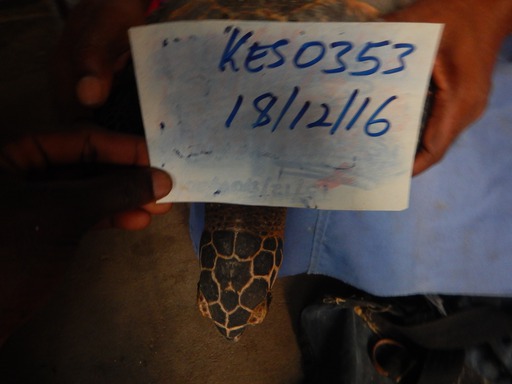 KES0353
18/12/16